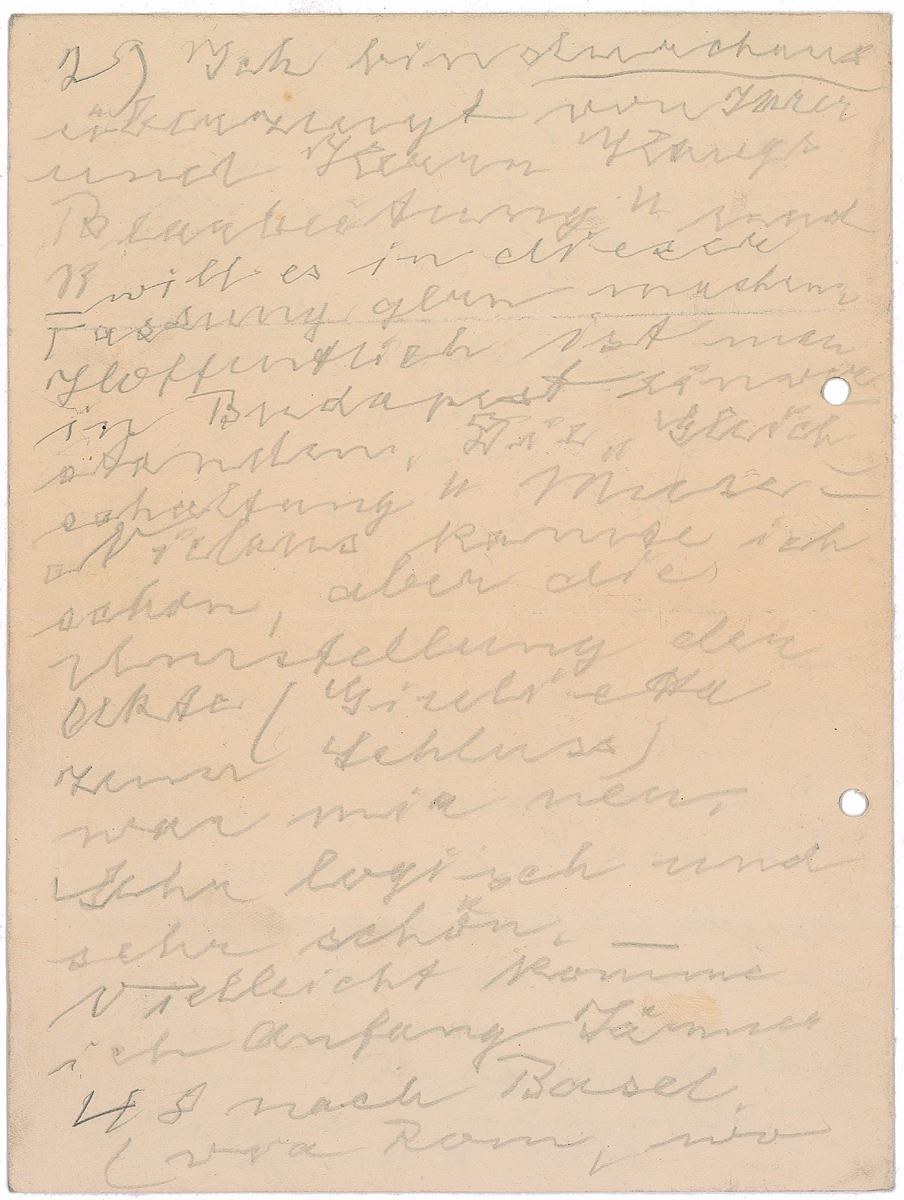 2) Ich bin durchaus
überzeugt von Ihrer
und Herrn
Bearbeitung" und
will es in dieser
Fassung gern machen.
Hoffentlich ist man
in Budapest einver
standen. Die „Gleich
schaltung" Mieze-
Niclaus kannte ich
schon, aber die
Umstellung der
Akte (Giulietta
zum Schluss)
war mir neu,
Sehr logisch und
sehr schön.
Vielleicht komme
ich Anfang Jänner
48 nach Basel
(via Rom, wo